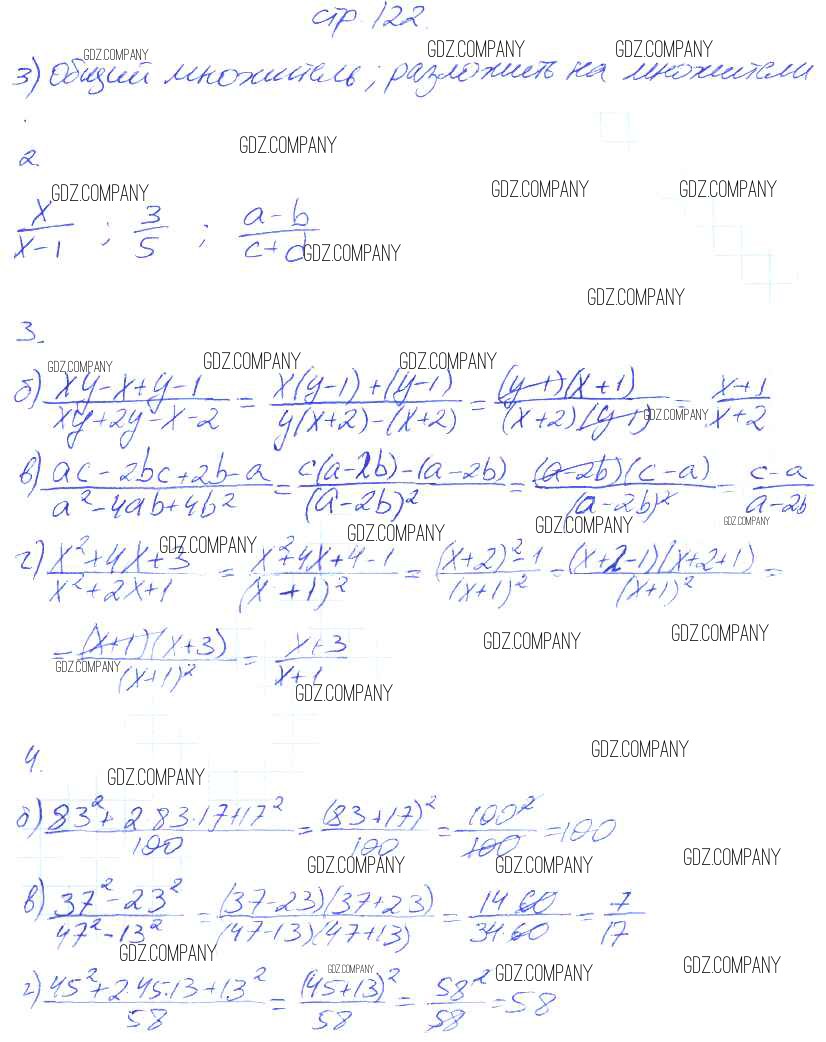 стр. 122.
GDZ.COMPANY GDZ.COMPANY GDZ.COMPANY
3) Общий множитель; разложить на множители
GDZ.COMPANY
2.
GDZ.COMPANY GDZ.COMPANY GDZ.COMPANY
x/(x-1) ; 3/5 ; (a-b)/(c+d)
GDZ.COMPANY
GDZ.COMPANY
3.
GDZ.COMPANY GDZ.COMPANY GDZ.COMPANY
б) (xy-x+y-1)/(xy+2y-x-2) = (x(y-1)+(y-1))/(y(x+2)-(x+2)) = ((y-1)(x+1))/((x+2)(y-1)) = (x+1)/(x+2)
GDZ.COMPANY
в) (ac-2bc+2b-a)/(a²-4ab+4b²) = (c(a-2b)-(a-2b))/(a-2b)² = ((a-2b)(c-a))/(a-2b)² = (c-a)/(a-2b)
GDZ.COMPANY GDZ.COMPANY GDZ.COMPANY GDZ.COMPANY
г) (x²+4x+3)/(x²+2x+1) = (x²+4x+4-1)/(x+1)² = ((x+2)²-1)/(x+1)² = ((x+2-1)(x+2+1))/(x+1)² =
= ((x+1)(x+3))/(x+1)² = (x+3)/(x+1)
GDZ.COMPANY GDZ.COMPANY GDZ.COMPANY
GDZ.COMPANY
4.
GDZ.COMPANY GDZ.COMPANY
б) (83²+2 83·17+17²)/100 = (83+17)²/100 = 100²/100 = 100
GDZ.COMPANY GDZ.COMPANY GDZ.COMPANY
в) (37²-23²)/(47²-13²) = ((37-23)(37+23))/((47-13)(47+13)) = (14 60)/(34 60) = 7/17
GDZ.COMPANY GDZ.COMPANY GDZ.COMPANY GDZ.COMPANY
г) (45²+2 45·13+13²)/58 = (45+13)²/58 = 58²/58 = 58